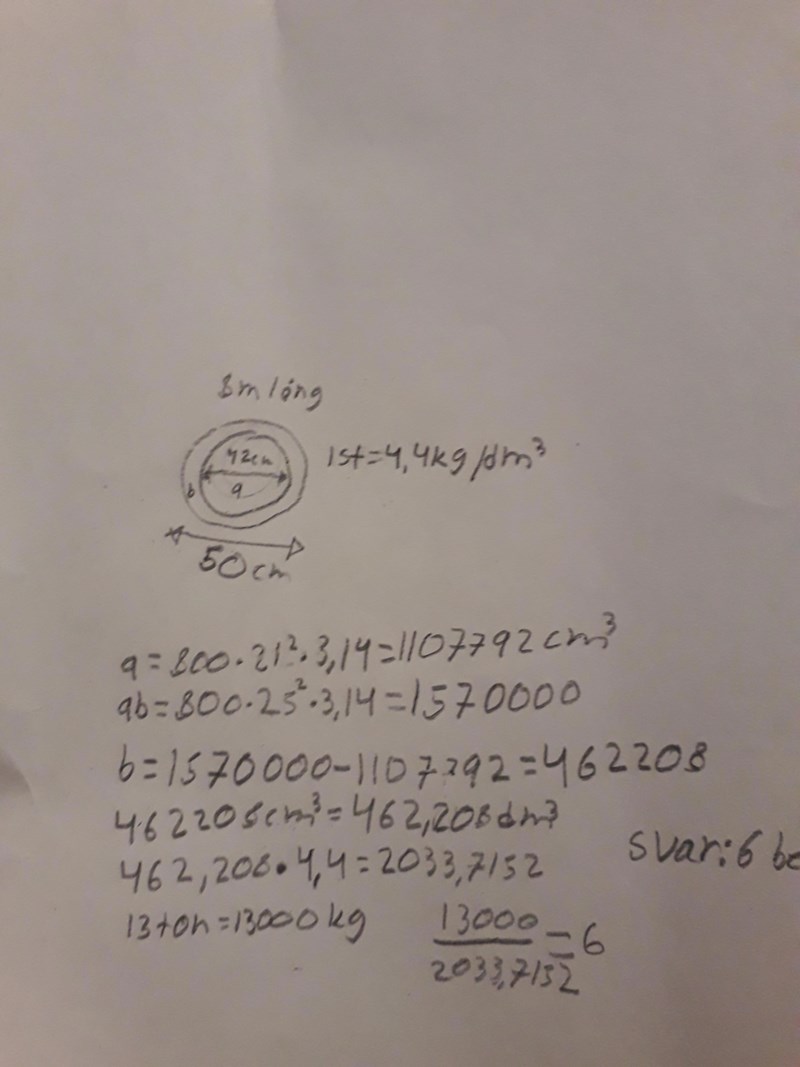 8m lång
42cm
a
b
1st=4,4kg/dm³
50cm
a=800·21²·3,14=1107792cm³
ab=800·25²·3,14=1570000
b=1570000-1107792=462208
462208cm³=462,208dm³
462,208·4,4=2033,7152
Svar:6
13ton=13000kg
13000/2033,7152=6